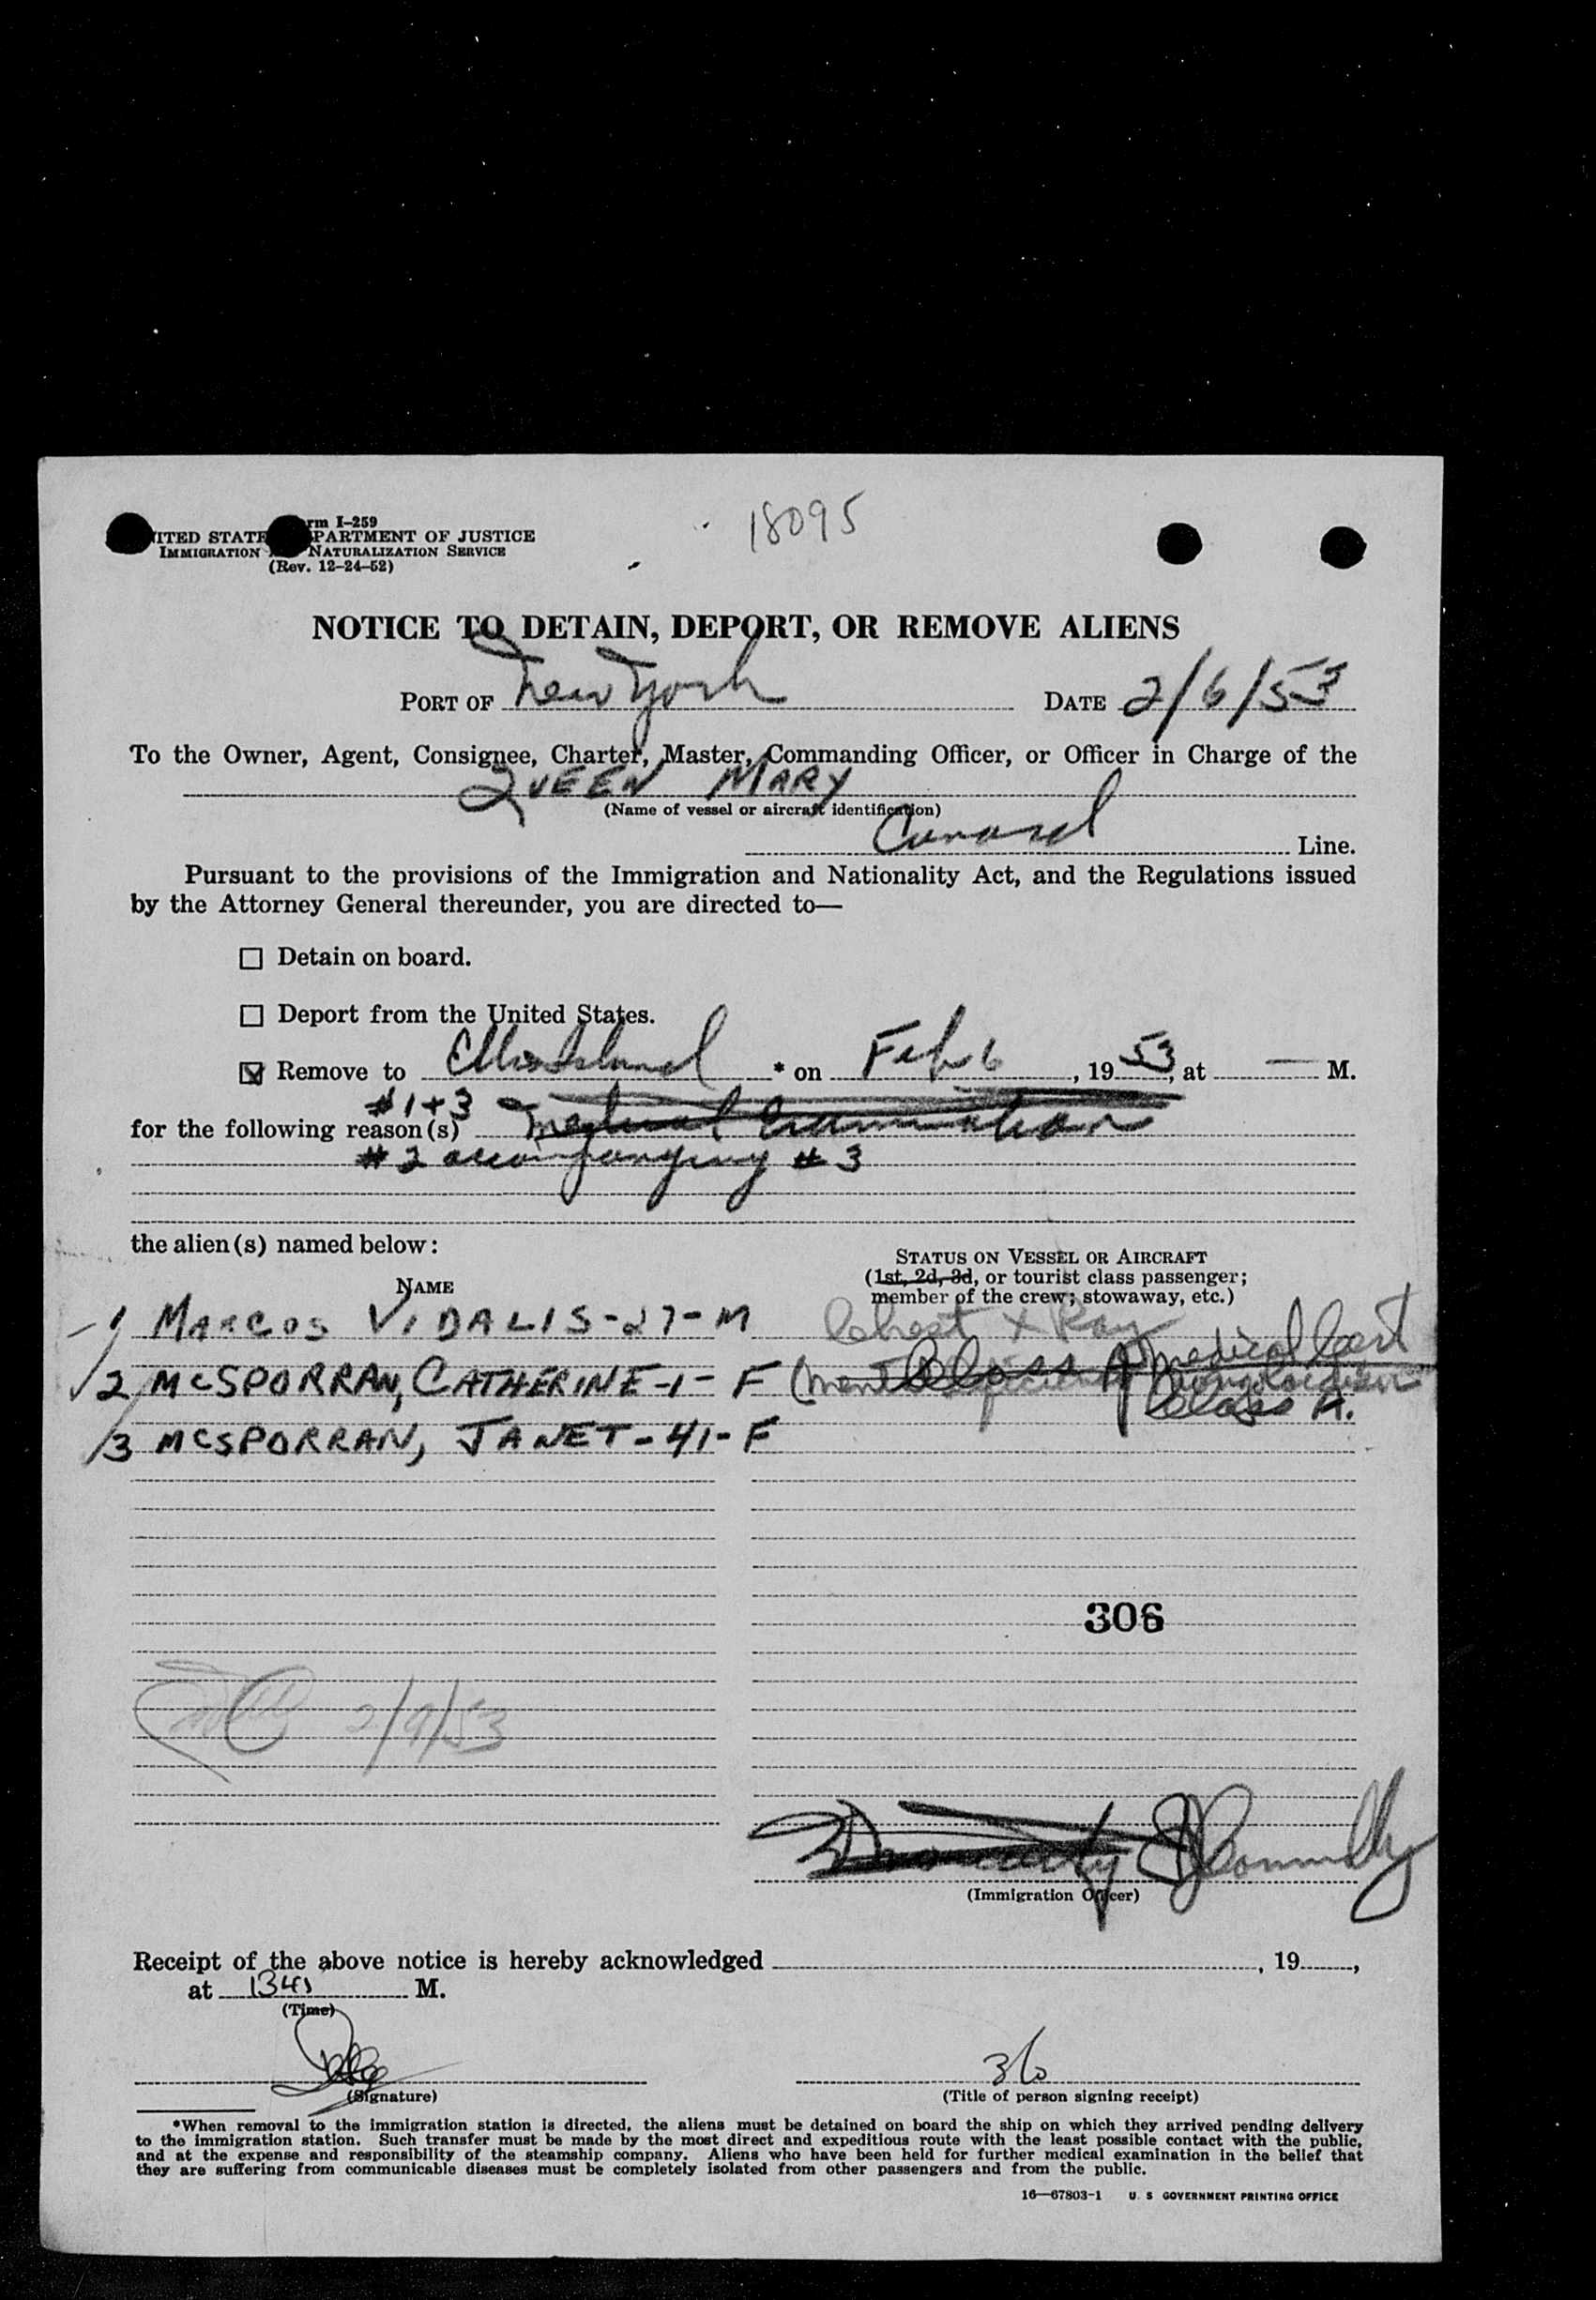 18095
Form I-259
UNITED STATES DEPARTMENT OF JUSTICE
IMMIGRATION AND NATURALIZATION SERVICE
(Rev. 12-24-52)
NOTICE TO DETAIN, DEPORT, OR REMOVE ALIENS
PORT OF New York DATE 2/6/53
To the Owner, Agent, Consignee, Charter, Master, Commanding Officer, or Officer in Charge of the
QUEEN MARY
(Name of vessel or aircraft identification)
Cunard Line.
Pursuant to the provisions of the Immigration and Nationality Act, and the Regulations issued
by the Attorney General thereunder, you are directed to—
☐ Detain on board.
☐ Deport from the United States.
☒ Remove to Ellis Island * on Feb 6, 1953, at — M.
#1+3
for the following reason(s) Medical Examination
#2 accompanying #3
the alien(s) named below:
STATUS ON VESSEL OR AIRCRAFT
NAME
(1st, 2d, 3d, or tourist class passenger;
member of the crew; stowaway, etc.)
1 MARCOS VIDALIS-27-M Chest X Ray
2 McSPORRAN, CATHERINE-1-F (Mental Class A medical Cert
Class A.
3 McSPORRAN, JANET-41-F
306
2/9/53
Connelly
(Immigration Officer)
Receipt of the above notice is hereby acknowledged , 19 ,
at 1341 M.
(Time)
36
(Signature) (Title of person signing receipt)
*When removal to the immigration station is directed, the aliens must be detained on board the ship on which they arrived pending delivery
to the immigration station. Such transfer must be made by the most direct and expeditious route with the least possible contact with the public,
and at the expense and responsibility of the steamship company. Aliens who have been held for further medical examination in the belief that
they are suffering from communicable diseases must be completely isolated from other passengers and from the public.
16—67803-1 U. S. GOVERNMENT PRINTING OFFICE